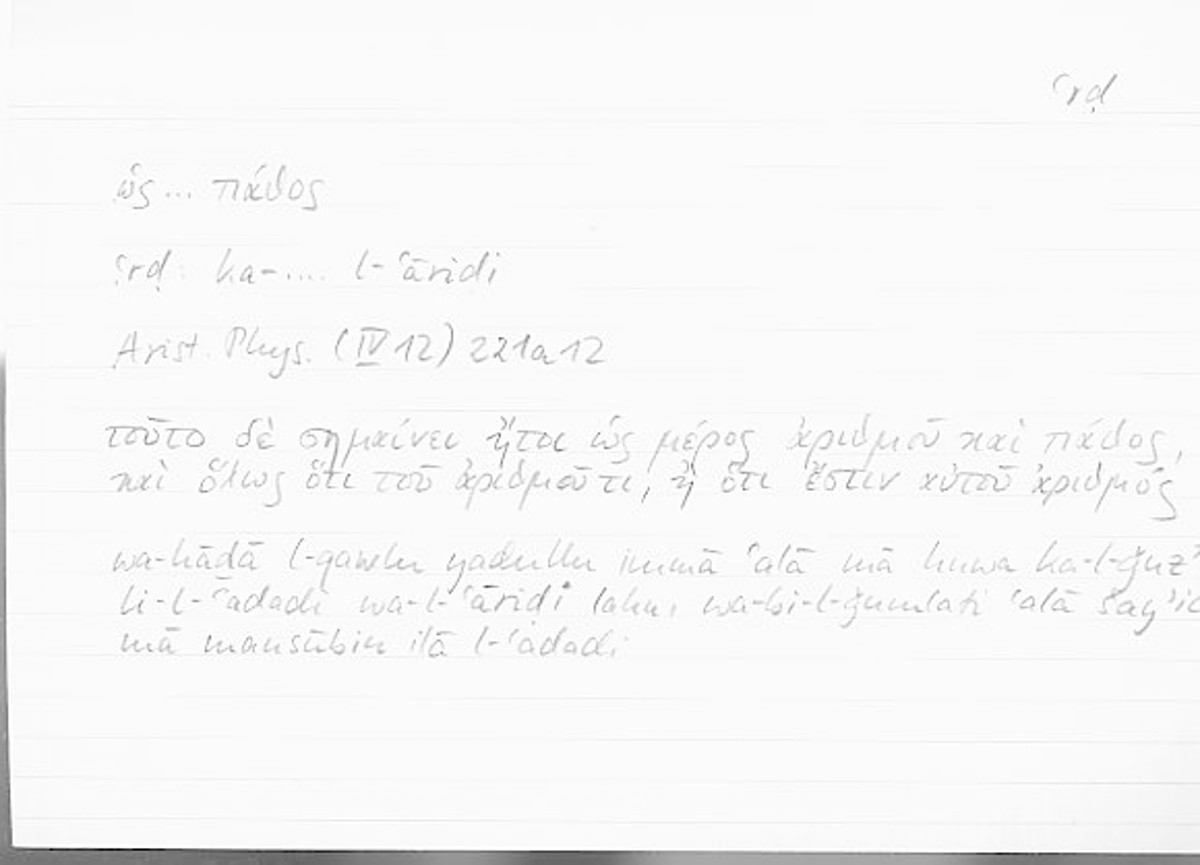 ʿrḍ
ὡς ... πάθος
ʿrḍ: ka-.... l-ʿāriḍi
Arist. Phys. (IV 12) 221a12
τοῦτο δὲ σημαίνει ἤτοι ὡς μέρος ἀριθμοῦ καὶ πάθος,
καὶ ὅλως ὅτι τοῦ ἀριθμοῦ τι, ἢ ὅτι ἔστιν αὐτοῦ ἀριθμός
wa-hāḏā l-qawlu yadullu immā ʿalā mā huwa ka-l-ǧuzʾ
li-l-ʿadadi wa-l-ʿāriḍi lahu, wa-bi-l-ǧumlati ʿalā šayʾin
mā mansūbin ilā l-ʿadadi